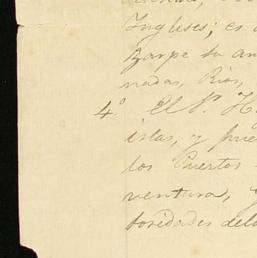 Ingleses; es
Zarpe su an
nadas, Rios,
4.º El Sr. H.
islas, y pue
los Puertos
ventura, y
toridades del